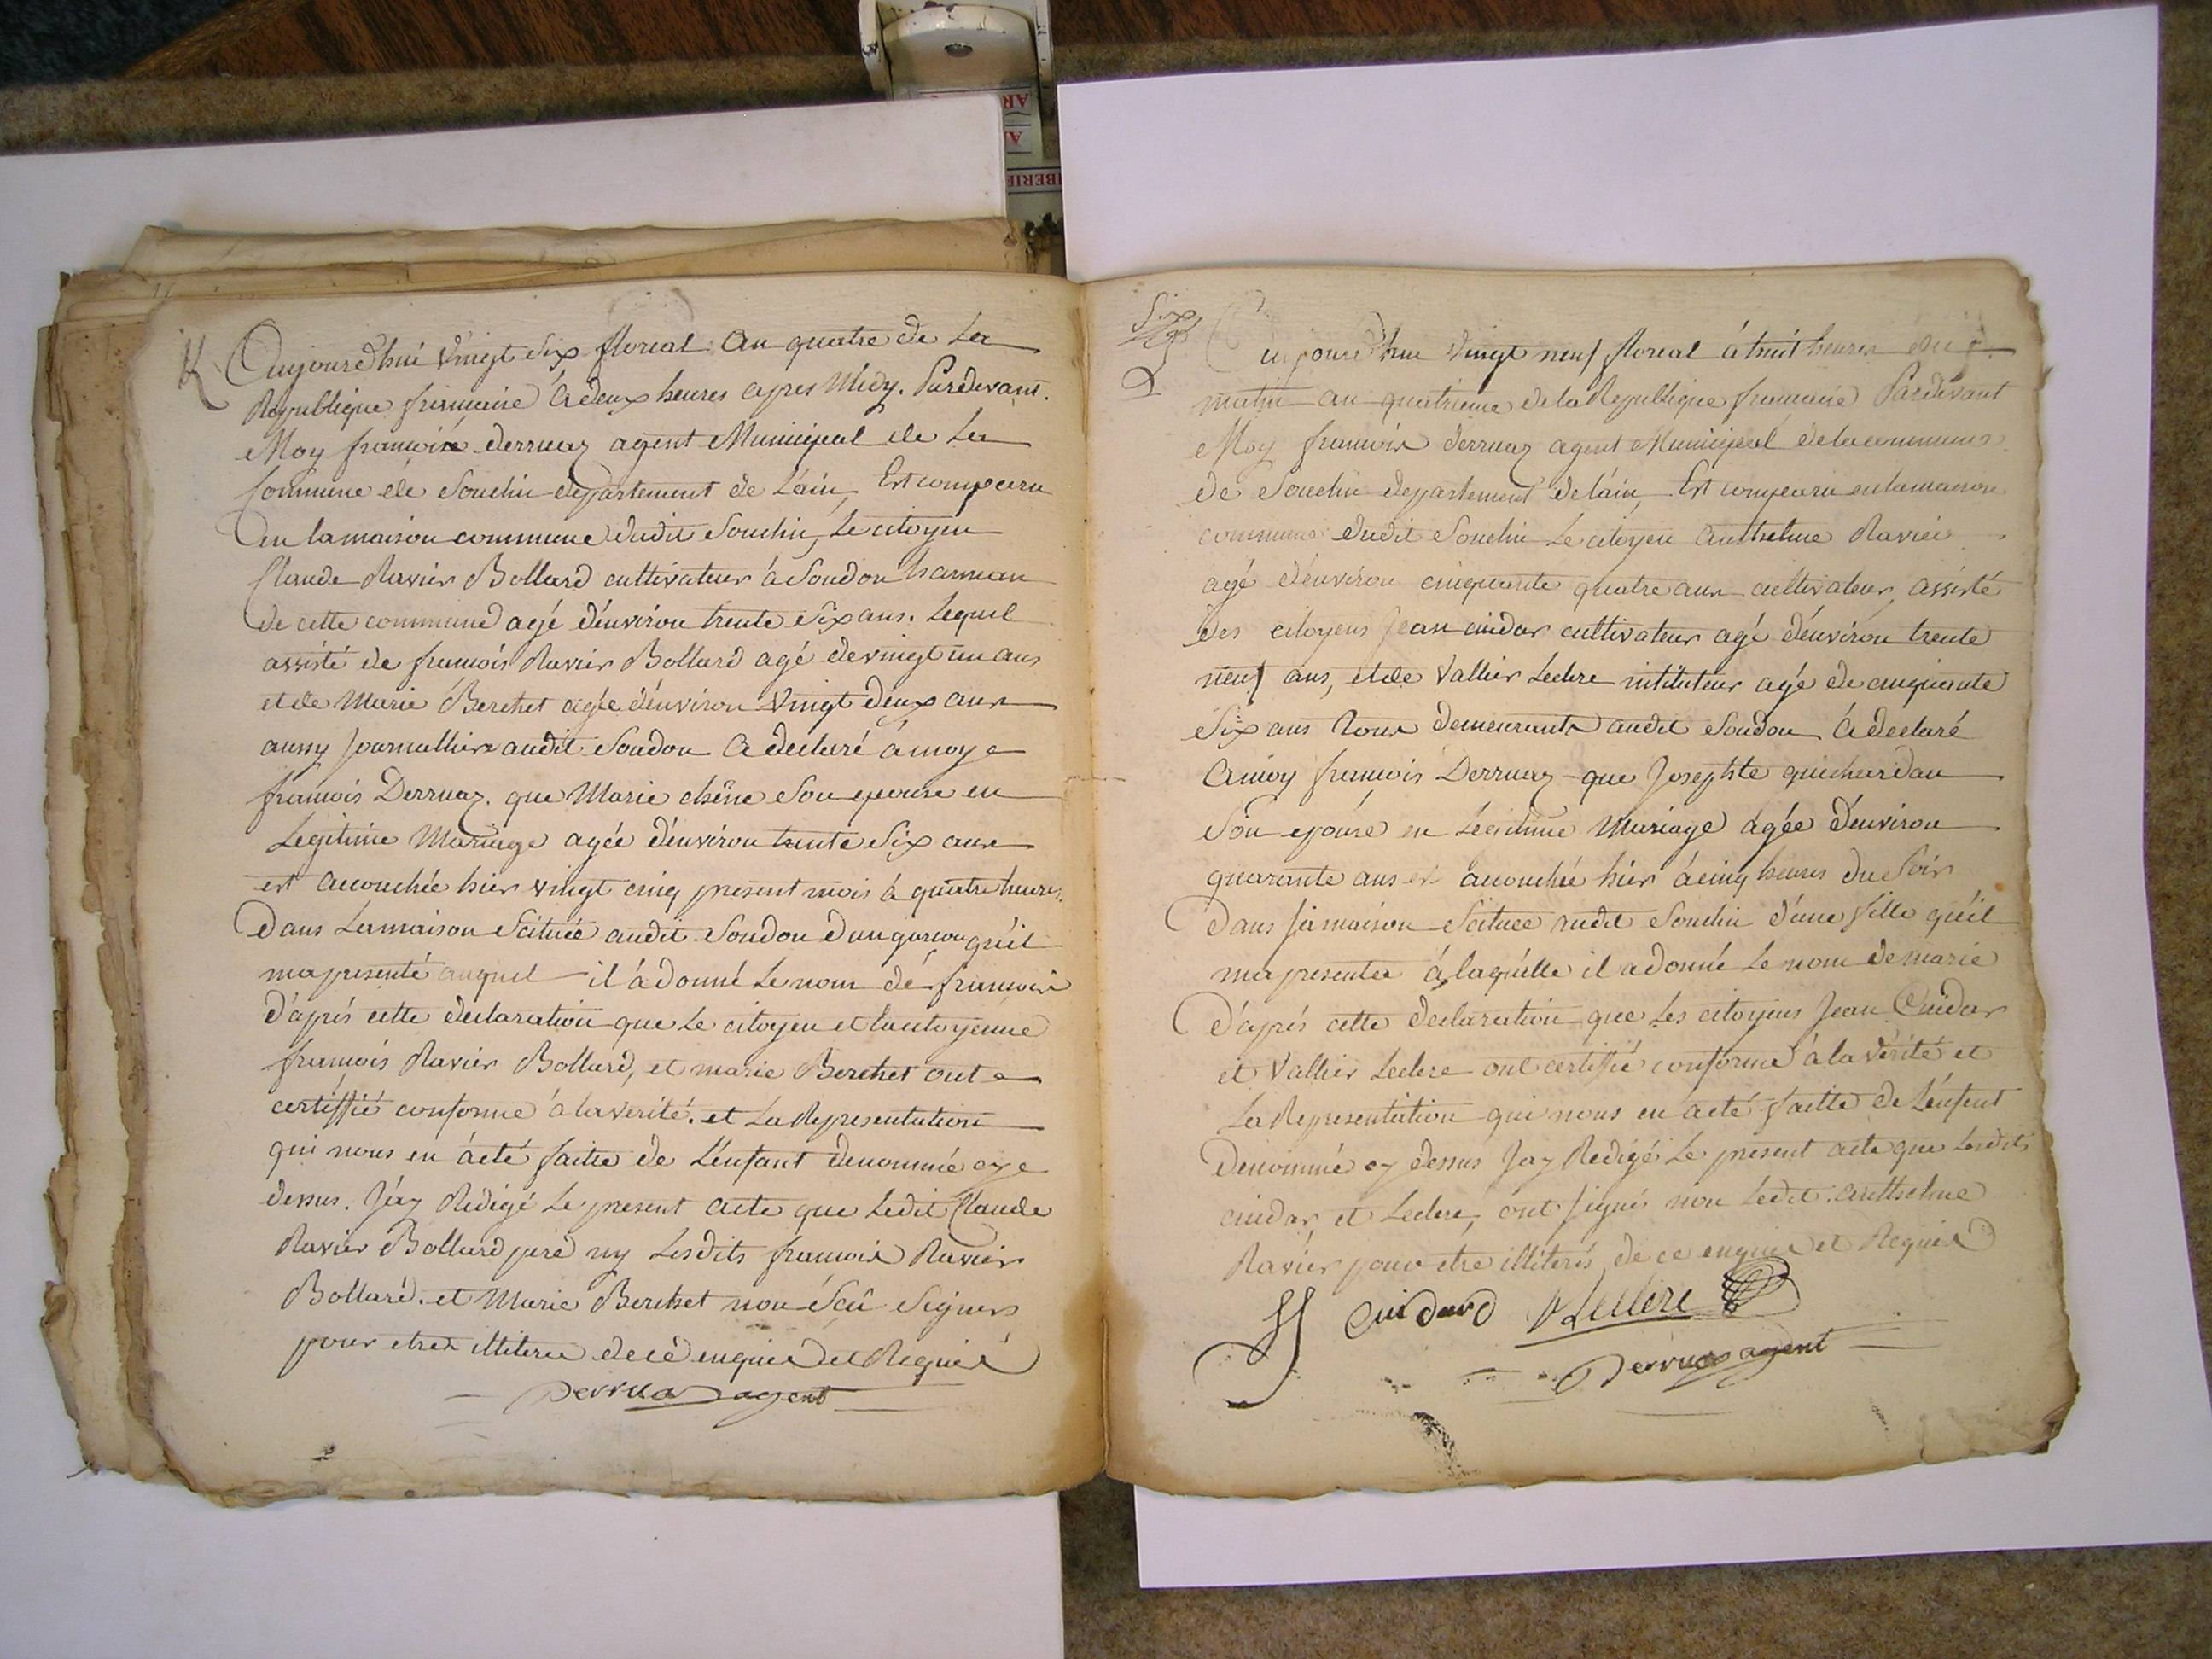 Aujourd'hui vingt six floreal an quatre de La
Republique françaisé à deux heures apres Midy. Pardevant.
Moy françois derruaz agent Municipal de La
Commune de Souclin departement de L'ain, Est comparu
En la maison commune dudit Souclin, Le citoyen
Claude Ravier Bollard cultivateur à Soudon hameau
de cette commune agé d'environ trente Six ans. Lequel
assisté de françois Ravier Bollard agé de vingt un ans
et de Marie Berchet agée d'environ vingt deux ans
aussy Journalliers audit Soudon a declaré à moy
françois Derruaz. que Marie chêne Son epouse en
Legitime Mariage agée d'environ trente Six ans
est accouchée hier vingt cinq present mois à quatre heures
Dans La maison Scituée audit Soudon d'un garcon qu'il
ma presenté auquel il à donné Le nom de françois
D'aprés cette declaration que Le citoyen et la citoyenne
françois Ravier Bollard, et marie Berchet ont
certiffié conforme à la verité. et La Representation
qui nous en à eté faitte de L'enfant denommé cy
dessus. J'ay Redigé Le present acte que Ledit Claude
Ravier Bollard peré ny Lesdits françois Ravier
Bollard. et Marie Berchet non Scû Signers
pour etres illiterés de cé enquis et Requis
Derruaz agent
Six
Aujourd'hui vingt neuf floreal à huit heures du
matin an quatrieme de la Republique francaise Pardevant
Moy francois derruaz agent Municipal de la commune
de Souclin departement de lain, Est comparu en la maison
commune dudit Souclin Le citoyen Anthelme Ravier
agé d'environ cinquante quatre ans cultivateur, assisté
des citoyens Jean cuidar cultivateur agé d'environ trente
neuf ans, et de Vallier Leclere instituteur agé de cinquante
Six ans tous demeurants audit Soudon à declaré
à moy françois Derruaz que Josephte guichardan
Son epouse en Legitime Mariage agée d'environ
quarante ans est accouchée hier à cinq heures du Soir
Dans sa maison Scituée audit Souclin d'une fille qu'il
ma presentée à laquelle il a donné Le nom de marie
D'aprés cette declaration que Les citoyens Jean Cuidar
et Vallier Leclere ont certiffié conforme à la verité et
La Representation qui nous en a eté faitte de L'enfent
Denommé cy dessus J'ay Redigé Le present acte que Lesdits
cuidar et Leclere, ont signés non Ledit anthelme
Ravier pour etre illiterés, de ce enquis et Requis
Cuidard VLeclere
Derruaz agent